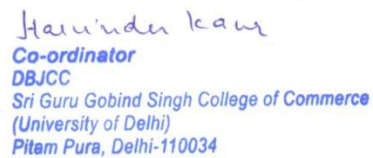 Harvinder Kaur
Co-ordinator
DBJCC
Sri Guru Gobind Singh College of Commerce
(University of Delhi)
Pitam Pura, Delhi-110034